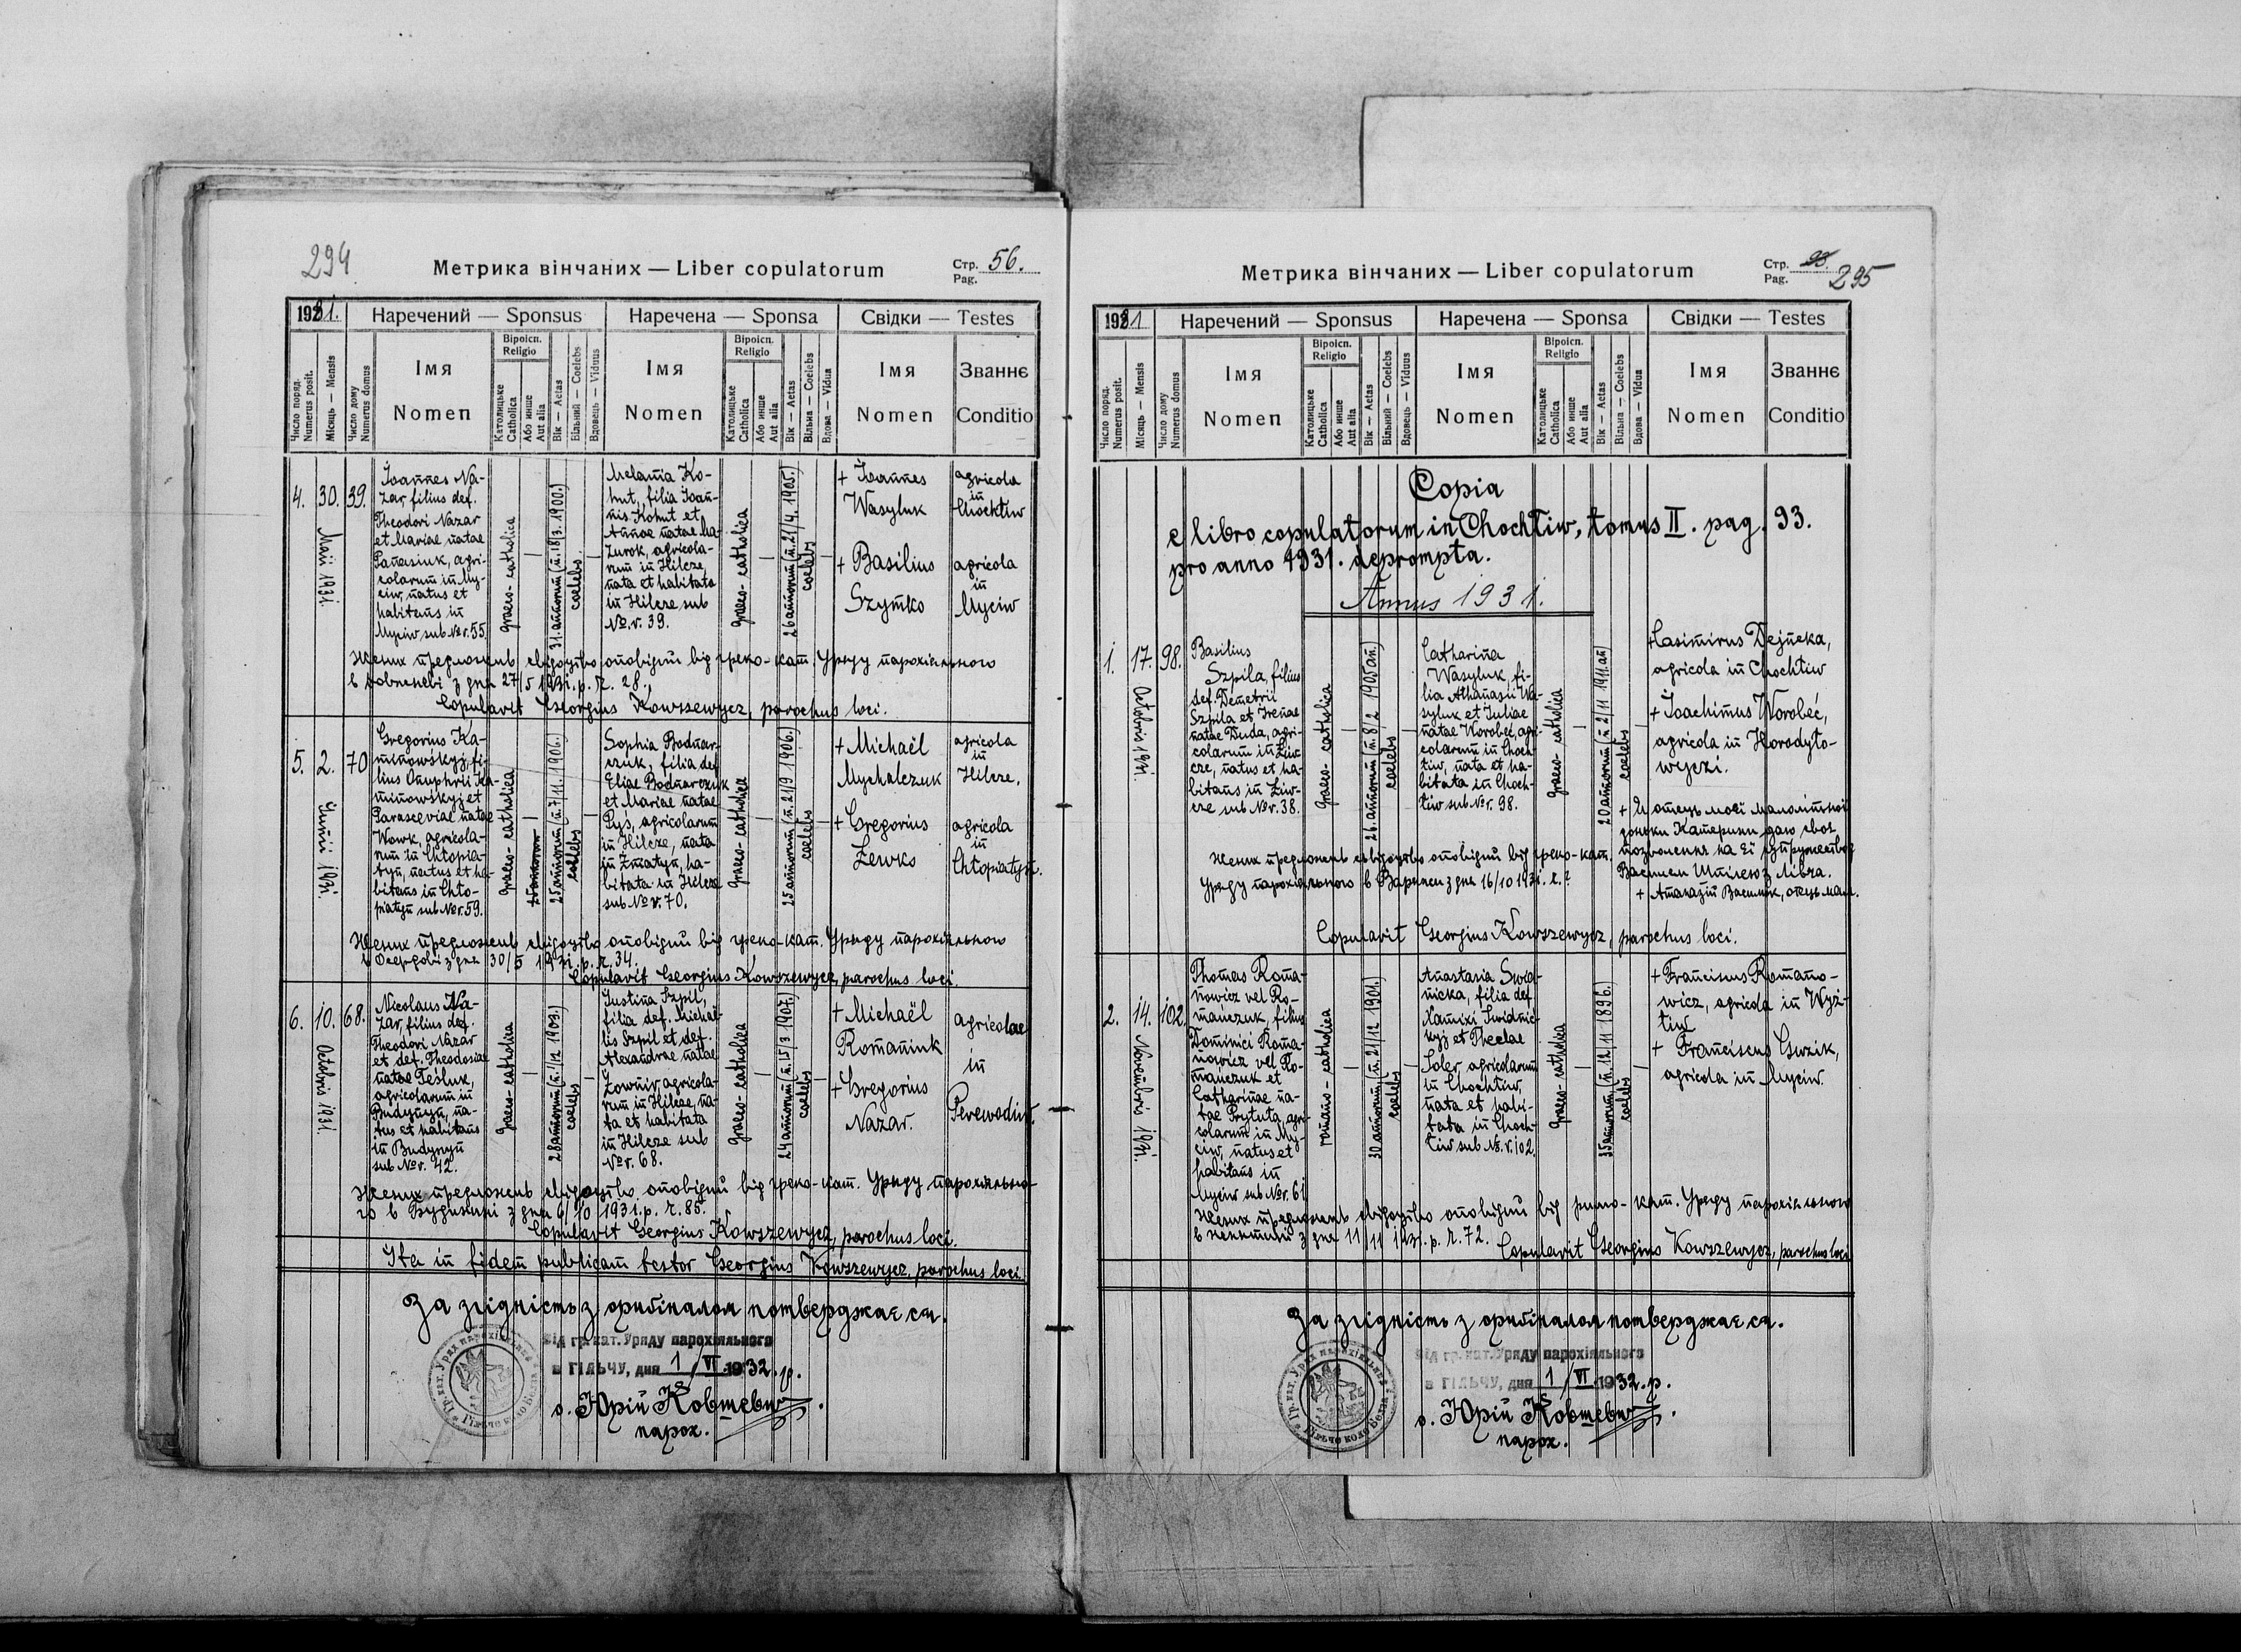 294
Метрика вінчаних — Liber copulatorum
Стр. 56.
Pag.
1931.
Наречений — Sponsus
Наречена — Sponsa
Свідки — Testes
Число поряд.
Numerus posit.
Місяць — Mensis
Число дому
Numerus domus
Імя
Nomen
Віроісп.
Religio
Католицьке
Catholica
Або инше
Aut alia
Вік — Aetas
Вільний — Coelebs
Вдовець — Viduus
Імя
Nomen
Віроісп.
Religio
Католицьке
Catholica
Або инше
Aut alia
Вік — Aetas
Вільна — Coelebs
Вдова — Vidua
Імя
Nomen
Званнє
Conditio
4.
30.
Maii 1931.
39.
Ioannes Na-
zar, filius def.
Theodori Nazar
et Mariae natae
Panasiuk, agri-
colarum in My-
ciw, natus et
habitans in
Myciw sub Nr. 55.
graeco-catholica
31. annorum (n. 18/3. 1900.)
coelebs
Melania Ko-
hut, filia Ioan-
nis Kohut et
Annae natae Ma-
zurok, agricola-
rum in Hilcze,
nata et habitata
in Hilcze sub
Nr. 39.
graeco-catholica
26 annorum (n. 21/4. 1905.)
coelebs
+ Ioannes
Wasyluk
agricola
in
Chochtiw
+ Basilius
Szymko
agricola
in
Myciw
Жених предложив свідоцтво оповідий від греко-кат. Уряду парохіяльного
в Довженеві з дня 27/5 1931. р. Ч. 28.
Copulavit Georgius Kowszewycz, parochus loci.
5.
2.
Iunii 1931.
70
Gregorius Ka-
minowśkyj, fi-
lius Onuphrii Ka-
minowśkyj et
Parasceviae natae
Wowk, agricola-
rum in Chłopia-
tyn, natus et ha-
bitans in Chło-
piatyn sub Nr. 59.
graeco-catholica
25 annorum (n. 7/11. 1906.)
coelebs
Sophia Bodnar-
czuk, filia def.
Eliae Bodnarczuk
et Mariae natae
Pyś, agricolarum
in Hilcze, nata
in Żniatyn, ha-
bitata in Hilcze
sub Nr. 70.
graeco-catholica
25 annorum (n. 21/9 1906.)
coelebs
+ Michaël
Mychalczuk
agricola
in
Hilcze.
+ Gregorius
Lewko
agricola
in
Chłopiatyn.
Жених предложив свідоцтво оповідий від греко-кат. Уряду парохіяльного
30/5 1931. р. Ч. 34.
Copulavit Georgius Kowszewycz, parochus loci.
6.
10.
Octobris 1931.
68.
Nicolaus Na-
zar, filius def.
Theodori Nazar
et def. Theodosiae
natae Teśluk,
agricolarum in
Budynyn, na-
tus et habitans
in Budynyn
sub Nr. 42.
graeco-catholica
coelebs
Iustina Szpil,
filia def. Michaë-
lis Szpil et def.
Alexandrae natae
Żownir, agricola-
rum in Hilcze, na-
ta et habitata
in Hilcze sub
Nr. 68.
graeco-catholica
24 annorum (n. 15/3 1907.)
coelebs
+ Michaël
Romaniuk
+ Gregorius
Nazar.
agricolae
in
Perewodiw.
Жених предложив свідоцтво оповідий від греко-кат. Уряду парохіяльно-
го в Будинині з дня 6/10 1931. р. Ч. 85.
Copulavit Georgius Kowszewycz, parochus loci.
Ita in fidem publicam testor Georgius Kowszewycz, parochus loci.
За згідність з оригіналом потверджає ся.
Від гр. кат. Уряду парохіяльного
в ГІЛЬЧУ, дня 1/VI 1932. р.
о. Юрій Ковшевич.
парох.
Метрика вінчаних — Liber copulatorum
Стр. 93.
Pag. 295
1931
Наречений — Sponsus
Наречена — Sponsa
Свідки — Testes
Число поряд.
Numerus posit.
Місяць — Mensis
Число дому
Numerus domus
Імя
Nomen
Віроісп.
Religio
Католицьке
Catholica
Або инше
Aut alia
Вік — Aetas
Вільний — Coelebs
Вдовець — Viduus
Імя
Nomen
Віроісп.
Religio
Католицьке
Catholica
Або инше
Aut alia
Вік — Aetas
Вільна — Coelebs
Вдова — Vidua
Імя
Nomen
Званнє
Conditio
Copia
e libro copulatorum in Chochtiw, tomus II. pag. 93.
pro anno 1931. deprompta.
Annus 1931.
1.
17.
Octobris 1931.
98.
Basilius
Szpila, filius
def. Demetrii
Szpila et Irenae
natae Duda, agri-
colarum in Liw-
cze, natus et ha-
bitans in Liw-
cze sub Nr. 38.
graeco-catholica
26. annorum (n. 8/2 1905 an.)
coelebs
Catharina
Wasyluk, fi-
lia Athanasii Wa-
syluk et Iuliae
natae Worobeć, agri-
colarum in Choch-
tiw, nata et ha-
bitata in Choch-
tiw sub Nr. 98.
graeco-catholica
20 annorum (n. 2/11 1911. an)
coelebs
+ Casimirus Dejneka,
agricola in Chochtiw
+ Ioachimus Worobeć,
agricola in Horodyło-
wyczi.
+ Я отець моєї малолітної
доньки Катерини даю своє
позволення на єї супружество з
Василем Шпілею з Лівча.
+ Атаназій Василюк, отець мал.
Жених предложив свідоцтво оповідий від греко-кат.
Уряду парохіяльного в Варяжи з дня 16/10 1931. Ч. ?
Copulavit Georgius Kowszewycz, parochus loci.
2.
14.
Novembris 1931.
102.
Thomas Roma-
nowicz vel Ro-
mańczuk, filius
Dominici Roma-
nowicz vel Ro-
mańczuk et
Catharinae na-
tae Prytuła, agri-
colarum in My-
ciw, natus et
habitans in
Myciw sub Nr. 61
romano-catholica
30 annorum, (n. 21/12 1901.)
coelebs
Anastasia Świd-
nicka, filia def.
Swidnic-
kyj et Theclae
Soler, agricolarum
in Chochtiw,
nata et habi-
tata in Choch-
tiw sub Nr. 102.
graeco-catholica
35 annorum, (n. 12/11 1896.)
coelebs
+ Franciscus Romano-
wicz, agricola in Wyż-
tiw
+ Franciscus Guzik,
agricola in Myciw.
Жених предложив свідоцтво оповідий від римо-кат. Уряду парохіяльного
з дня 11/11 1931. р. Ч. 72.
Copulavit Georgius Kowszewycz, parochus loci
За згідність з оригіналом потверджає ся.
Від гр. кат. Уряду парохіяльного
в ГІЛЬЧУ, дня 1/VI 1932. р.
о. Юрій Ковшевич.
парох.